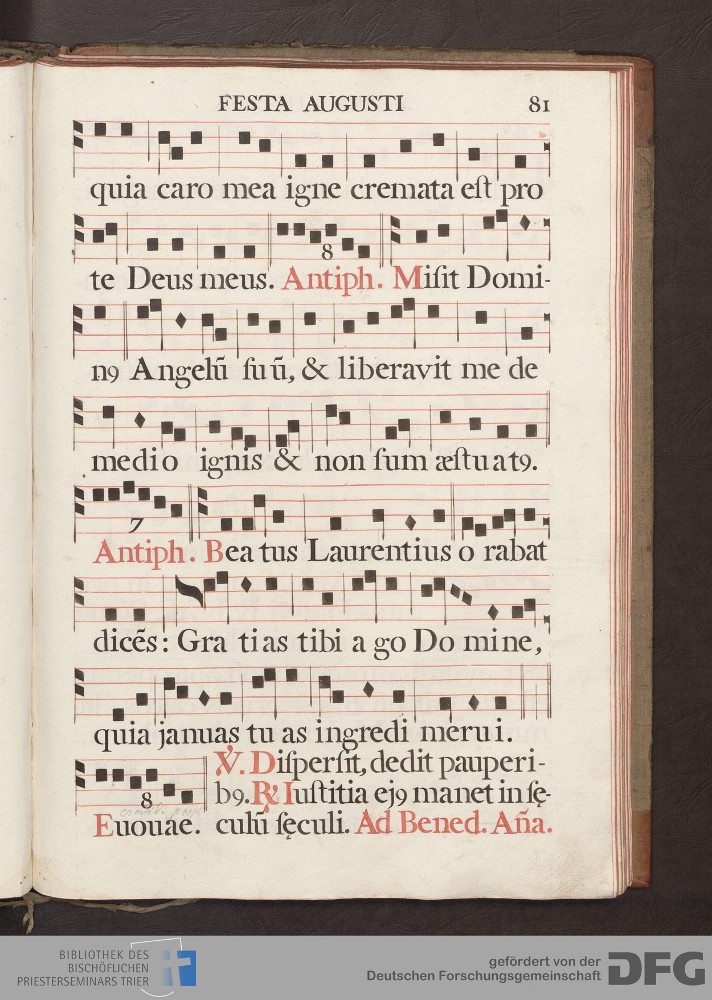 FESTA AUGUSTI 81
quia caro mea igne cremata eſt pro
8
te Deus meus. Antiph. Miſit Domi-
n9 Angelũ ſuũ, & liberavit me de
medio ignis & non ſum æſtuat9.
7
Antiph. Beatus Laurentius orabat
dicẽs: Gratias tibi ago Domine,
quia januas tuas ingredi merui.
℣. Diſperſit, dedit pauperi-
8
b9. ℟ Iuſtitia ej9 manet in ſę-
Euouae. culũ ſęculi. Ad Bened. Aña.
BIBLIOTHEK DES
BISCHÖFLICHEN
PRIESTERSEMINARS TRIER
gefördert von der
Deutschen Forschungsgemeinschaft DFG